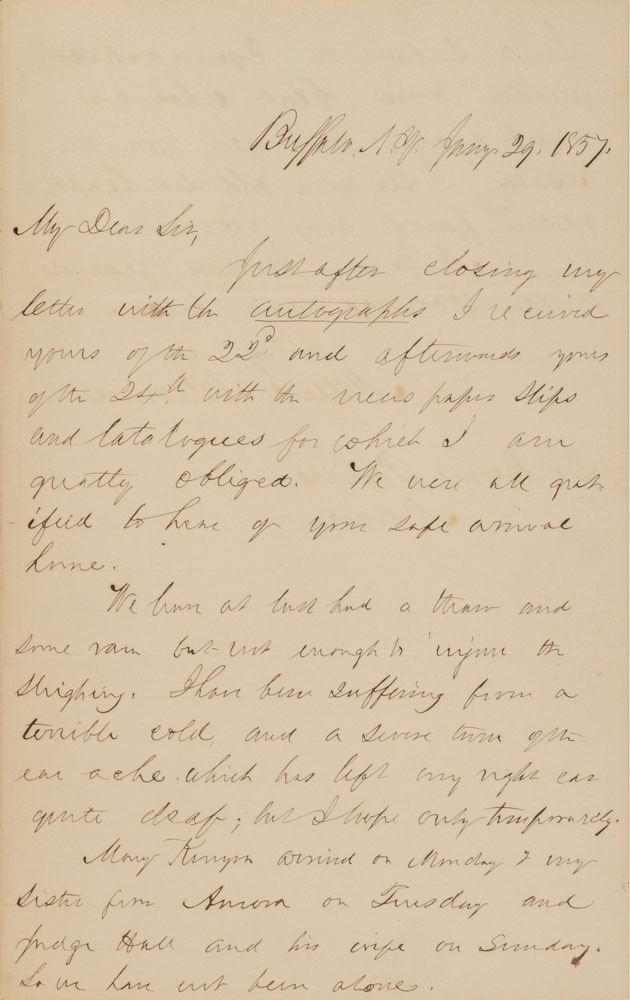 Buffalo, N.Y. Jany. 29. 1857.
My Dear Sir,
Just after closing my
letter with the autographs I received
yours of the 22d and afterwards yours
of the 24th with the news paper slips
and Catalogues for which I am
greatly obliged. We were all grat-
ified to hear of your safe arrival
home.
We have at last had a thaw and
some rain but not enough to injure the
sleighing. I have been suffering from a
terrible cold, and a severe turn of the
ear-ache which has left my right ear
quite deaf; but I hope only temporarily.
Mary Kenyon arrived on Monday & my
sister from Aurora on Tuesday and
Judge Hall and his wife on Sunday.
So we have not been alone.